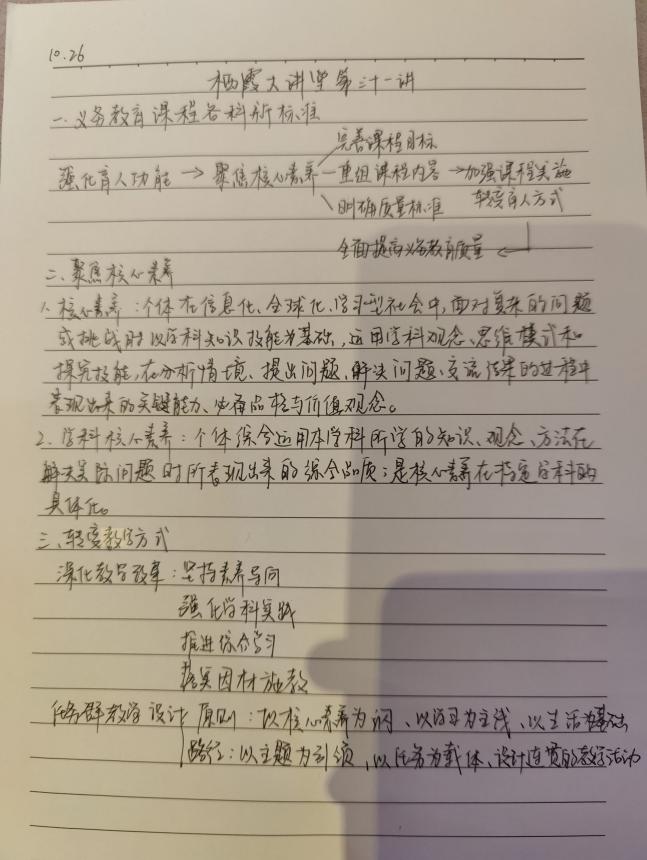 10.26
栖霞大讲堂第三十一讲
一.义务教育课程各科新标准
完善课程目标
强化育人功能 → 聚焦核心素养 — 重组课程内容 → 加强课程实施
明确质量标准 转变育人方式
全面提高义务教育质量 ←
二、聚焦核心素养
1. 核心素养：个体在信息化、全球化、学习型社会中，面对复杂的问题
或挑战时以学科知识技能为基础，运用学科观念、思维模式和
探究技能，在分析情境、提出问题、解决问题、交流结果的过程中
表现出来的关键能力、必备品格与价值观念。
2. 学科核心素养：个体综合运用本学科所学的知识、观念、方法在
解决实际问题时所表现出来的综合品质；是核心素养在特定学科的
具体化。
三、转变教学方式
深化教学改革：坚持素养导向
强化学科实践
推进综合学习
落实因材施教
任务群教学设计 原则：以核心素养为纲、以学习为主线、以生活为基础
路径：以主题为引领，以任务为载体、设计连贯的教学活动